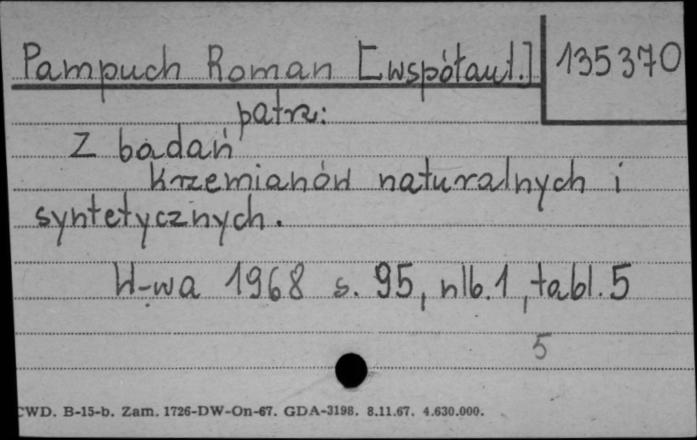 Pampuch Roman [współaut.] 135370
patrz:
Z badań
krzemianów naturalnych i
syntetycznych.
W-wa 1968 s. 95, nlb. 1, tabl. 5
5
CWD. B-15-b. Zam. 1726-DW-On-67. GDA-3198. 8.11.67. 4.630.000.